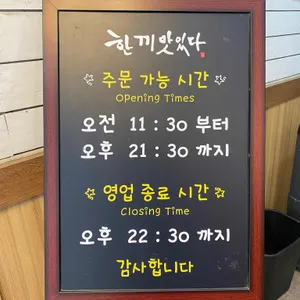 한끼맛있다
주문 가능 시간
Opening Times
오전 11 : 30 부터
오후 21 : 30 까지
영업 종료 시간
Closing Time
오후 22 : 30 까지
감사합니다